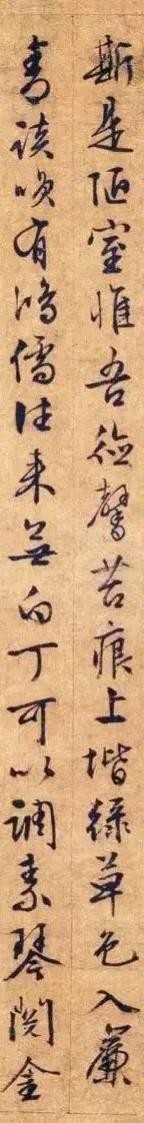 斯是陋室惟吾德馨苔痕上堦綠草色入簾
青談咲有鴻儒往来無白丁可以調素琴閱金